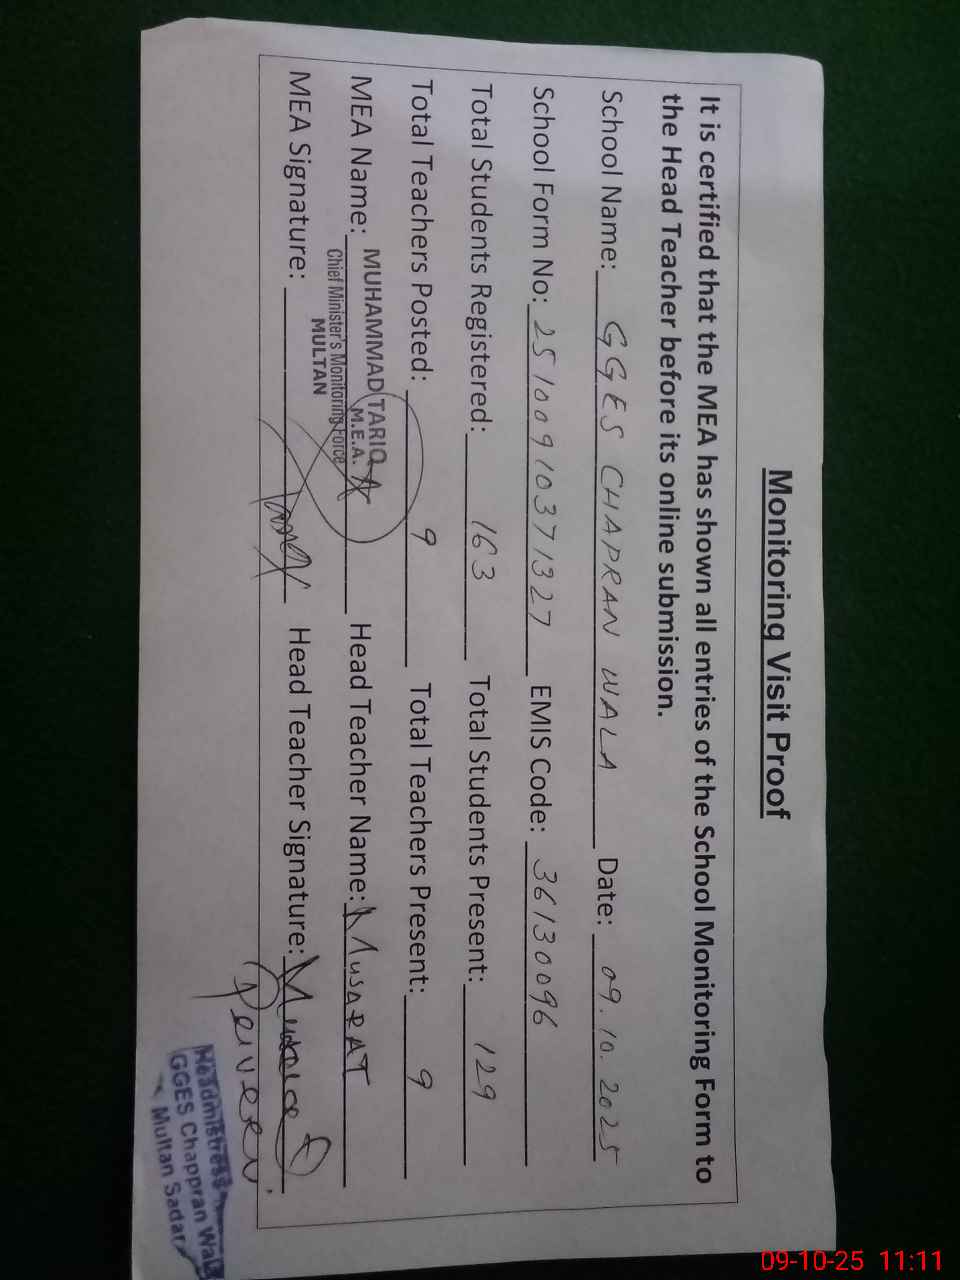 Monitoring Visit Proof
It is certified that the MEA has shown all entries of the School Monitoring Form to
the Head Teacher before its online submission.
School Name: GGES CHAPRAN WALA Date: 09.10.2025
School Form No: 25100910371327 EMIS Code: 36130096
Total Students Registered: 163 Total Students Present: 129
Total Teachers Posted: 9 Total Teachers Present: 9
MEA Name: MUHAMMAD TARIQ Head Teacher Name: MUSARAT
M.E.A.
Chief Minister's Monitoring Force
MULTAN
MEA Signature: Head Teacher Signature:
Perveen
Headmistress
GGES Chappran Wala
Multan Sadar
09-10-25 11:11